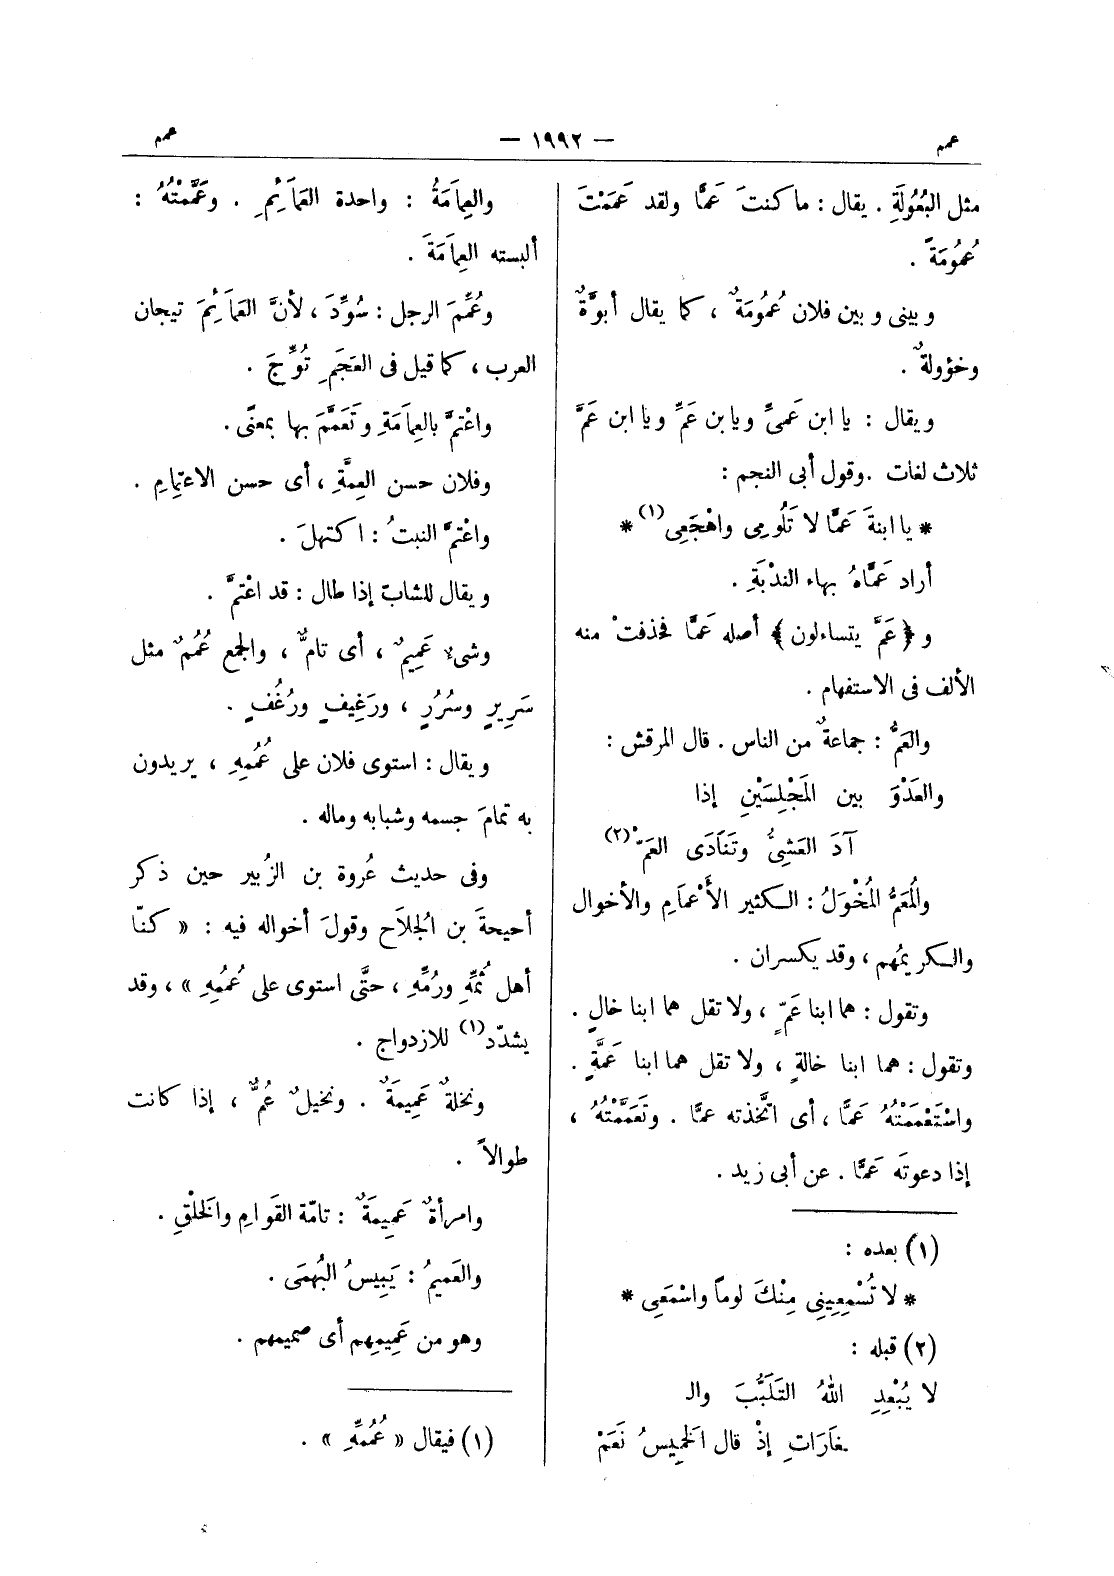 عمم
— ١٩٩٢ —
عمم
مثل البُعُولَةِ . يقال : ما كنتَ عَمًّا ولقد عَمَمْتَ
عُمُومَةً .
و بينى و بين فلان عُمُومَةٌ ، كما يقال أبوَّةٌ
وخؤولةٌ .
ويقال : يا ابن عَمىِّ ويا بن عَمِّ ويا ابن عَمَّ
ثلاث لغات . وقول أبى النجم :
* يا ابنةَ عَمَّا لا تَلُومِى واهْجَعِى (١) *
أراد عَمَّاهُ بهاء الندْبَةِ .
و ﴿ عَمَّ يتساءلون ﴾ أصله عَمَّا فحذفتْ منه
الألف فى الاستفهام .
والعَمُّ : جماعةٌ من الناس . قال المرقش :
والعَدْوَ بين المَجْلِسَيْنِ إذا
آدَ العَشِىُّ وتَنَادَى العَمّْ (٢)
والمُعَمُّ المُخْوَلُ : الكثير الأَعْمَامِ والأخوال
والكريمُهم ، وقد يكسران .
وتقول : هما ابنا عَمٍّ ، ولا تقل هما ابنا خالٍ .
وتقول : هما ابنا خالةٍ ، ولا تقل هما ابنا عَمَّةٍ .
واسْتَعْمَمْتُهُ عَمًّا ، أى اتَّخذته عمًّا . وتَعَمَّمْتُهُ ،
إذا دعوتَه عَمًّا . عن أبى زيد .
(١) بعده :
* لا تُسْمِعِينِى مِنْكَ لوماً واسْمَعِى *
(٢) قبله :
لا يُبْعِدِ اللهُ التَلَبُّبَ والـ
ـغَارَاتِ إذْ قال الخَمِيسُ نَعَمْ
والعِمَامَةُ : واحدة العَمَائِمِ . وعَمَّمْتُهُ :
ألبسته العِمَامَةَ .
وعُمِّمَ الرجل : سُوِّدَ ، لأنَّ العَمَائِمَ تيجان
العرب ، كما قيل فى العَجَمِ تُوِّجَ .
واعْتَمَّ بالعِمَامَةِ وتَعَمَّمَ بها بمعنًى .
وفلان حسن العِمَّةِ ، أى حسن الاعتمامِ .
واعْتَمَّ النبتُ : اكتهلَ .
ويقال للشابّ إذا طال : قد اعْتَمَّ .
وشىء عَمِيمٌ ، أى تامٌّ ، والجمع عُمُمٌ مثل
سَرِيرٍ وسُرُرٍ ، ورَغِيفٍ ورُغُفٍ .
ويقال : استوى فلان على عُمُمِهِ ، يريدون
به تمامَ جسمه وشبابه وماله .
وفى حديث عُروة بن الزُبير حين ذكر
أحيحةَ بن الجُلاَح وقولَ أخواله فيه : « كنّا
أهل ثُمِّهِ ورُمِّهِ ، حتَّى استوى على عُمُمِهِ » ، وقد
يشدّد (١) للازدواج .
ونخلةٌ عَمِيمَةٌ . ونخيلٌ عُمٌّ ، إذا كانت
طوالاً .
وامرأةٌ عَمِيمَةٌ : تامّة القَوامِ والخَلْقِ .
والعَمِيمُ : يَبِيسُ البُهمَى .
وهو من عَمِيمِهم أى صميمهم .
(١) فيقال « عُمُمِّهِ » .